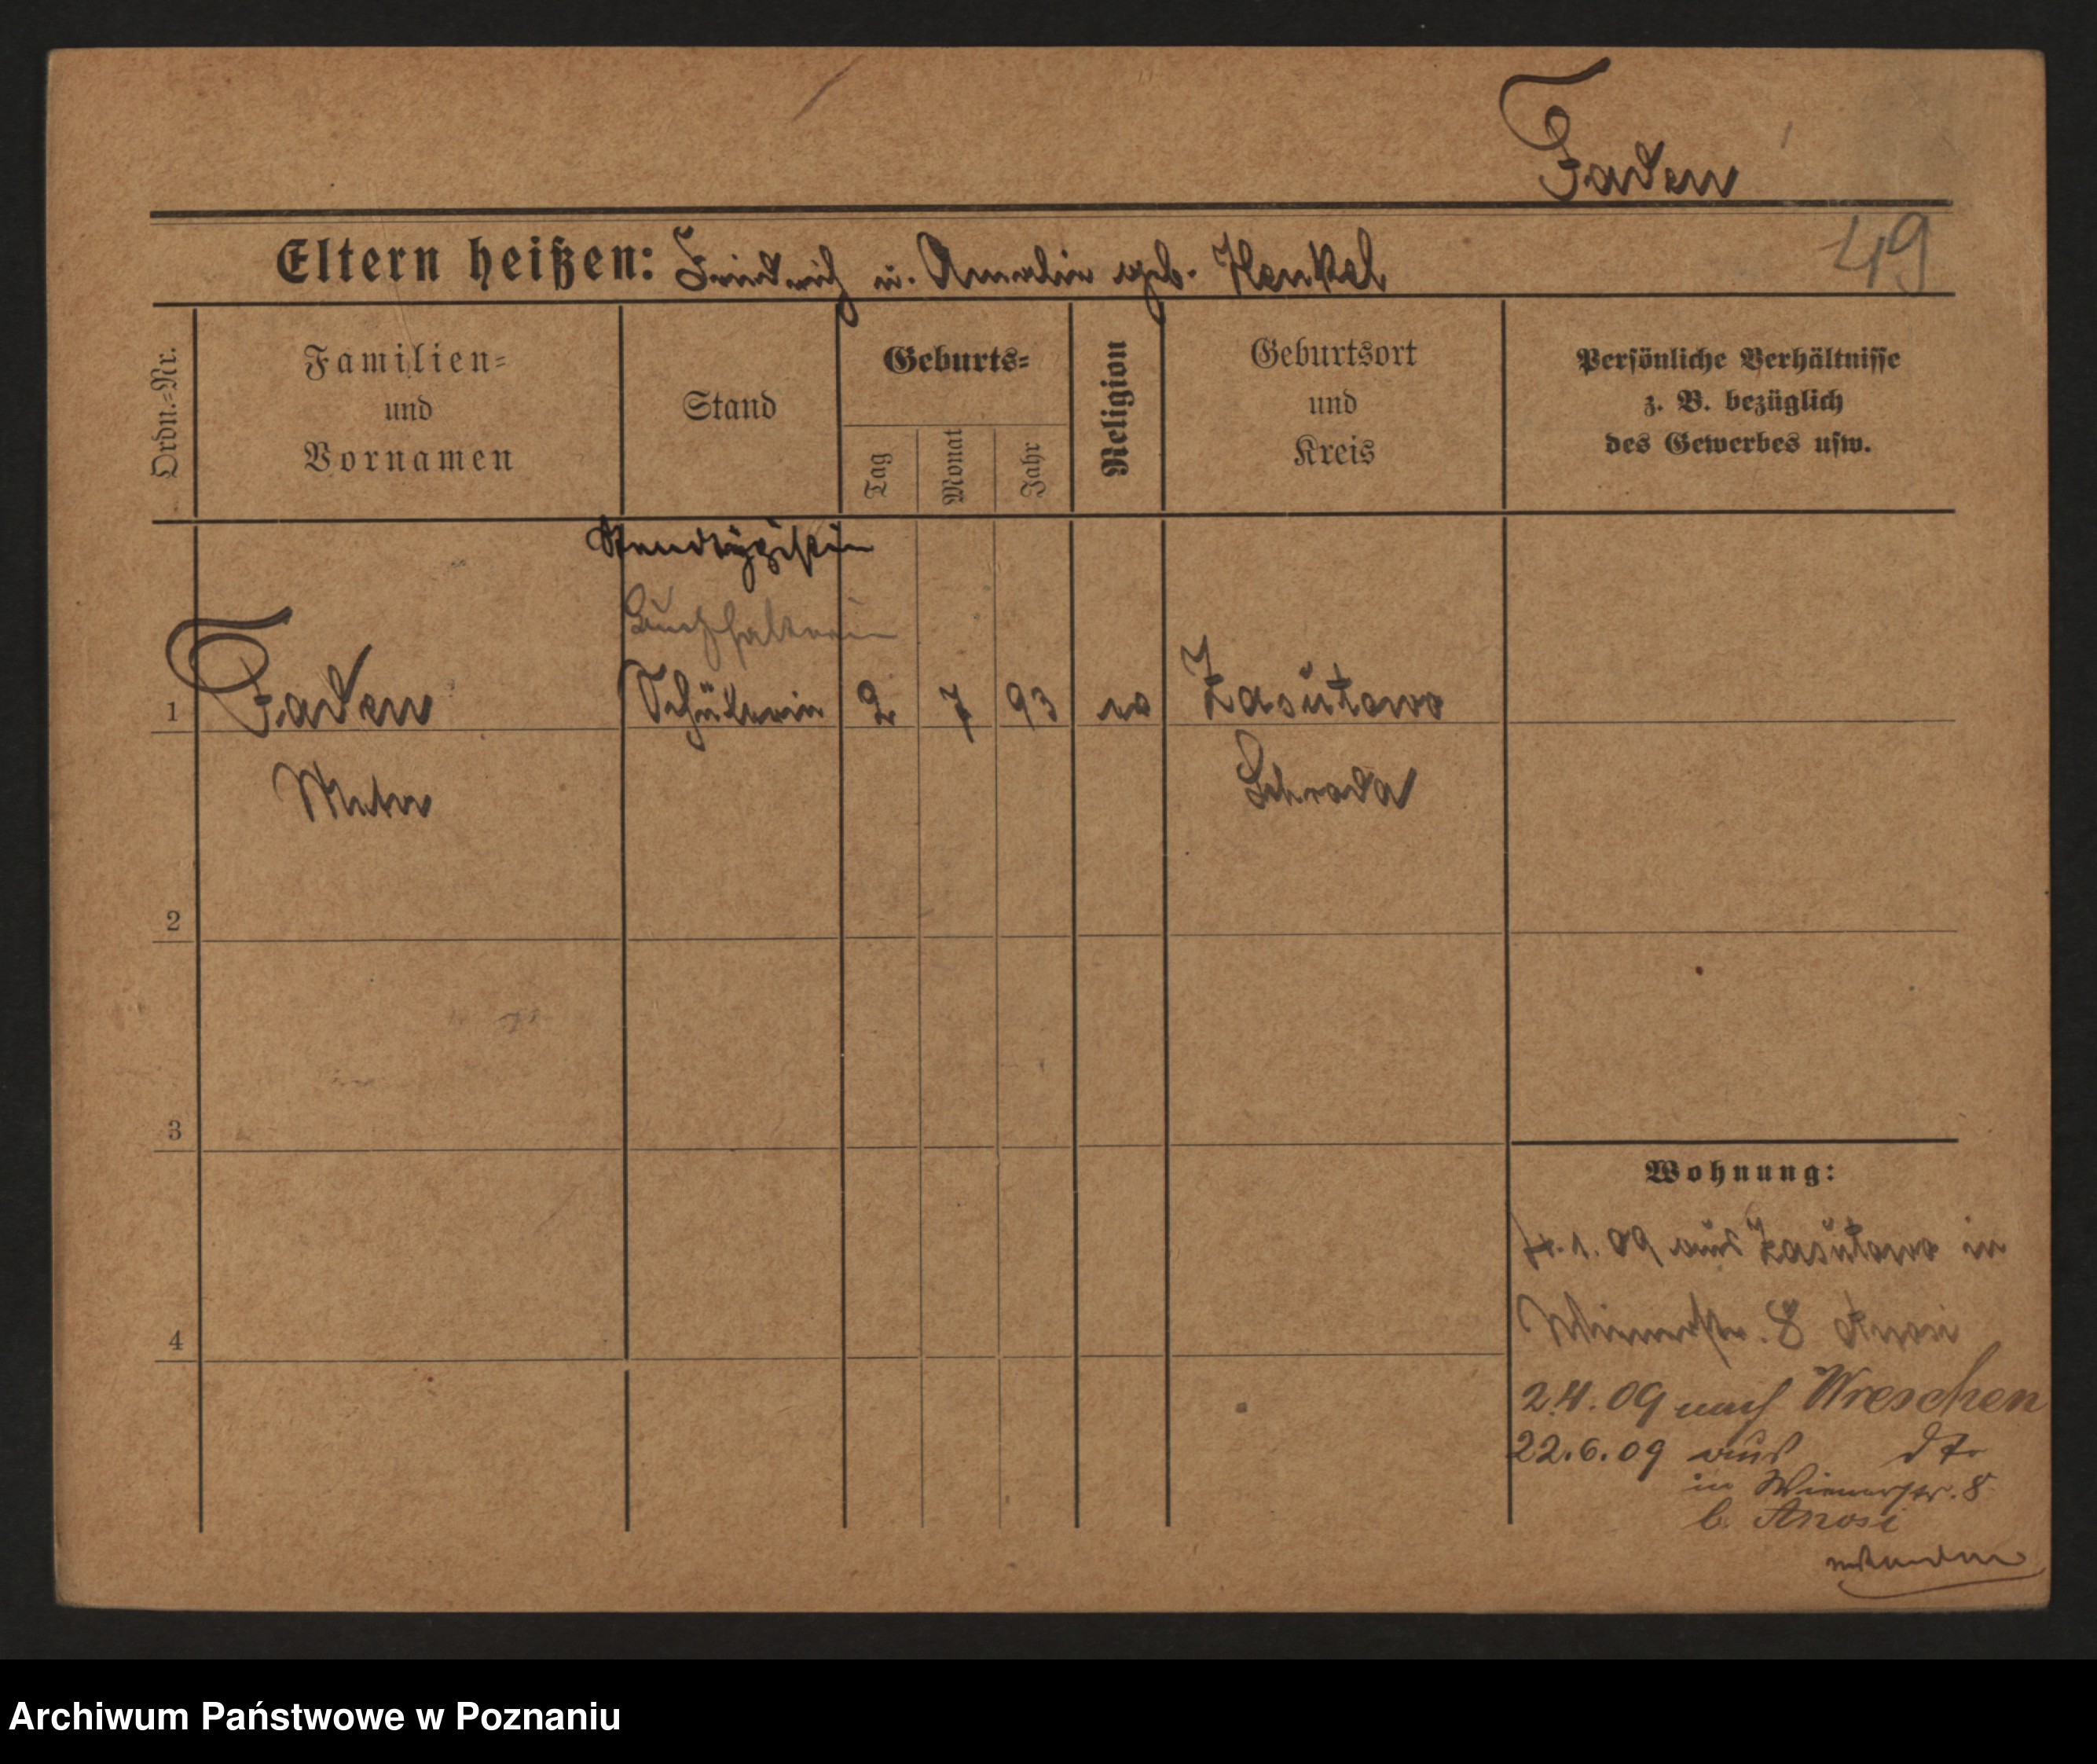 Faden
49
Eltern heißen: Friedrich u. Amalie geb. Henkel
Ordn.=Nr.
Familien=
und
Vornamen
Stand
Geburts=
Tag
Monat
Jahr
Religion
Geburtsort
und
Kreis
Persönliche Verhältnisse
z. B. bezüglich
des Gewerbes usw.
Buchhalterin
1 Faden Schülerin 2 7 93 ev Zasutowo
Meta Schroda
2
3
4
Wohnung:
4.1.09 aus Zasutowo in
Wienerstr. 8
2.4.09 nach Wreschen
22.6.09 aus dto
in Wienerstr. 8
b. Knosi
Archiwum Państwowe w Poznaniu